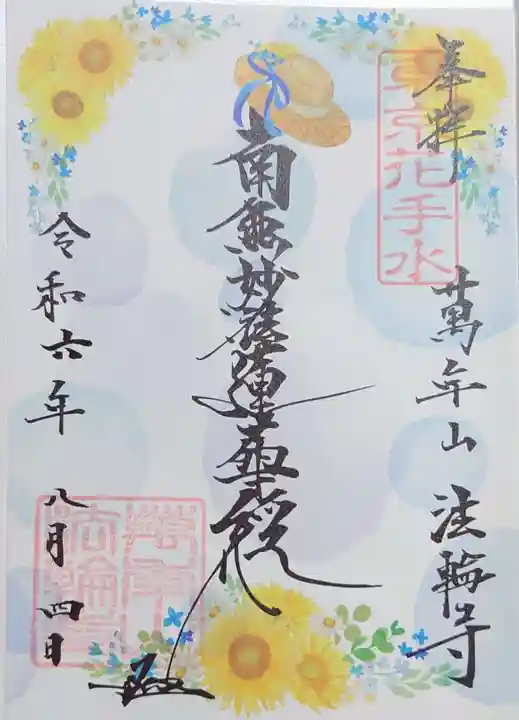 奉拝
東京花手水
萬年山 法輪寺
南無妙法蓮華経
令和六年 八月 四日